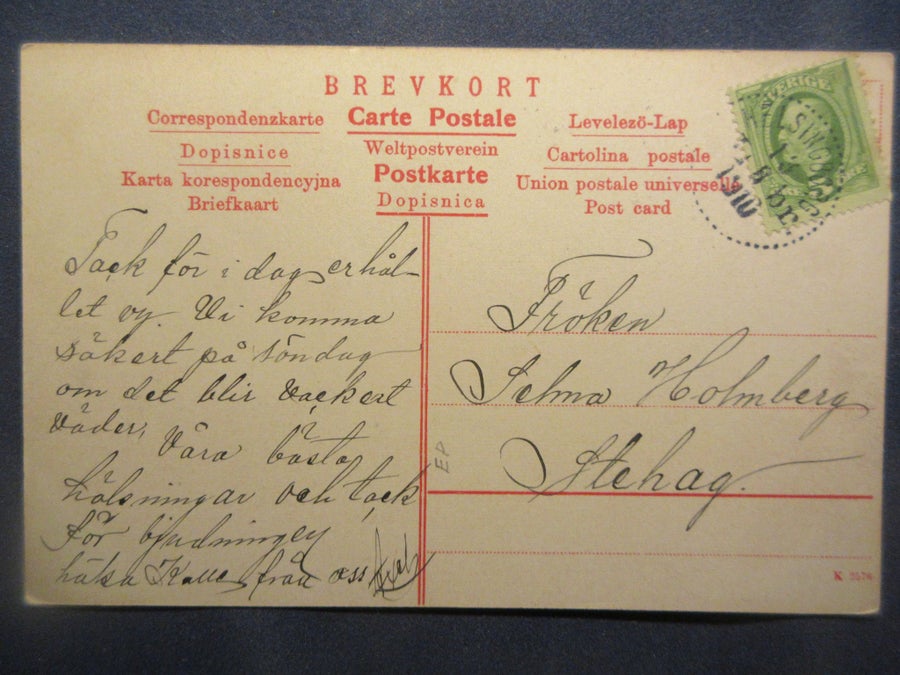 BREVKORT
Correspondenzkarte
Carte Postale
Levelezö-Lap
Dopisnice
Weltpostverein
Cartolina postale
Karta korespondencyjna
Postkarte
Union postale universelle
Briefkaart
Dopisnica
Post card
SVERIGE
1910
Tack för i dag erhål-
let vy. Vi komma
säkert på söndag
om det blir vackert
väder, Våra bästa
hälsningar och tack
för bjudningen
hälsa Kalle från oss
Fröken
Selma Holmberg
Stehag.
EP
K 2576